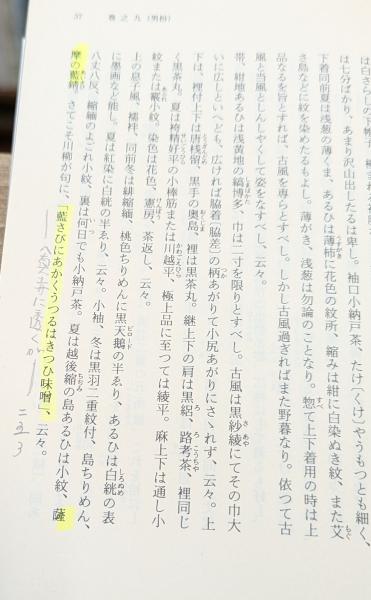 57　巻之九（男扮）
は七分ばかり、あまり沢山出したるは卑し。袖口小納戸茶、たけ〔くけ〕やうもつとも細く、
下着同前夏は浅葱の薄くま、あるひは薄柿に花色の紋所、縮みは紺に白染ぬき紋、また艾
さ島などに紋を染めたるもよし。薄がき、浅葱は勿論のことなり。惣て上下着用の時は上
品なるを旨とすれば、古風を専らとすべし。しかし古風過ぎればまた野暮なり。依つて古
風と当風としんしやくして姿をなすべし、云々。
帯、紺地あるひは浅黄地の縞博多、巾は二寸を限りとすべし。古風は黒紗綾にてその巾大
いに広しといへども、広ければ脇着〔脇差〕の柄あがりて小尻あがりにさゝれず、云々。上
下は、裡付上下は唐桟留、黒手の奥島、裡は黒茶丸。継上下の肩は黒絽、路考茶、裡同じ
く黒茶丸。夏は袴精好平の小棒筋または川越平、極上品に至つては綾平。麻上下は通し小
紋または霰小紋、染色は花色、憲房、茶返し、云々。
上の息子風、襦袢、同前冬は緋縮緬、桃色ちりめんに黒天鵝の半ゑり、あるひは白絖の表
に墨画など能し。夏は紅染に白絖の半ゑり、云々。小袖、冬は黒羽二重紋付、島ちりめん、
八丈八反、縮緬のよごれ小紋、裏は何れでも小納戸茶。夏は越後縮の島あるひは小紋、薩
摩の藍錆、さてこそ川柳が句に、「藍さびにあかくうつるはきつひ味噌」、云々。